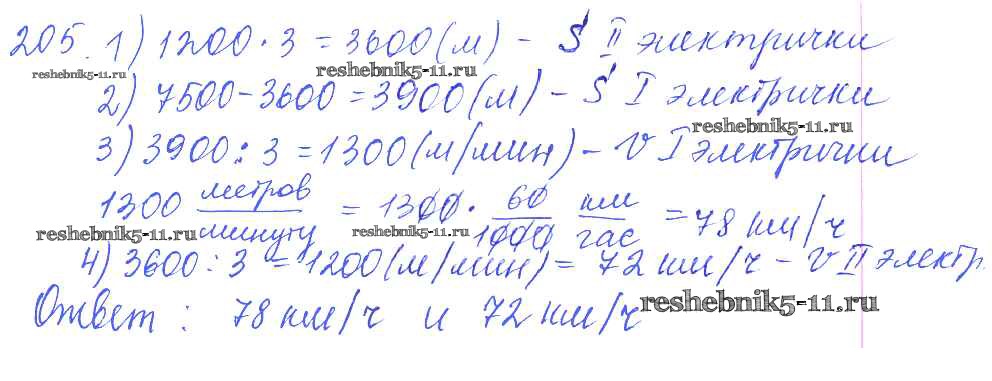 205. 1) 1200 · 3 = 3600 (м) - S II электрички
reshebnik5-11.ru reshebnik5-11.ru
2) 7500 - 3600 = 3900 (м) - S I электрички
reshebnik5-11.ru
3) 3900 : 3 = 1300 (м/мин) - v I электрички
1300 метров/минуту = 1300 · 60/1000 км/час = 78 км/ч
reshebnik5-11.ru reshebnik5-11.ru
4) 3600 : 3 = 1200 (м/мин) = 72 км/ч - v II электр.
Ответ: 78 км/ч и 72 км/ч
reshebnik5-11.ru